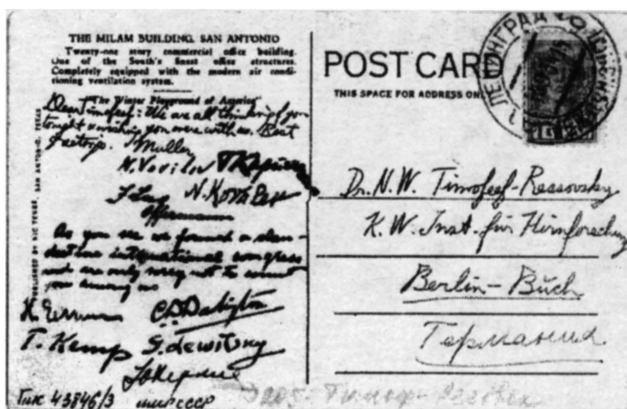 THE MILAM BUILDING, SAN ANTONIO
Twenty-one story commercial office building.
One of the South's finest office structures.
Completely equipped with the modern air condi-
tioning ventilation system.
"The Winter Playground of America"
Dear Timofeef: We are all thinking of you
tonight & wishing you were with us. Best
Muller
N. Vavilov
Offermann
As you see we found a clan-
destine international congress
and are only sorry not to count
you among us
C.D. Darlington
T. Kemp G. Lewitsky
PUBLISHED BY NIC TENGG, SAN ANTONIO, TEXAS
POST CARD
THIS SPACE FOR ADDRESS ON
ЛЕНИНГРАД
Dr. N. W. Timofeef-Ressovsky
K. W. Inst. für Hirnforschung
Berlin-Buch
Германия
43846/3 СССР